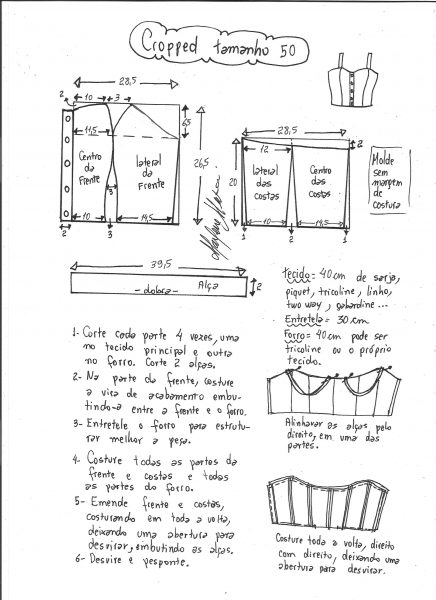 Cropped tamanho 50
28,5
2
10
3
6,5
11,5
26,5
Centro
da
Frente
lateral
da
Frente
3
10
14,5
2
3
28,5
12
2
20
lateral
das
costas
Centro
das
costas
10
14,5
1
2
1
Molde
sem
margem
de
costura
39,5
Alça
- dobra -
2
tecido = 40 cm de sarja,
piquet, tricoline, linho,
two way, gabardine...
Entretela = 30 cm
Forro = 40 cm pode ser
tricoline ou o próprio
tecido.
1- Corte cada parte 4 vezes, uma
no tecido principal e outra
no forro. Corte 2 alças.
2- Na parte da frente, costure
a vira de acabamento embu-
tindo-a entre a frente e o forro.
3- Entretele o forro para estrutu-
rar melhor a peça.
4- Costure todas as partes da
frente e costas e todas
as partes do forro.
5- Emende frente e costas,
costurando em toda a volta,
deixando uma abertura para
desvirar, embutindo as alças.
6- Desvire e pesponte.
Alinhavar as alças pelo
direito, em uma das
partes.
Costure toda a volta, direito
com direito, deixando uma
abertura para desvirar.